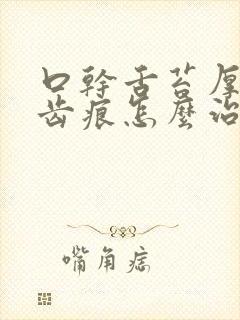 口幹舌苔厚
齒痕怎麼治
嘴角痣